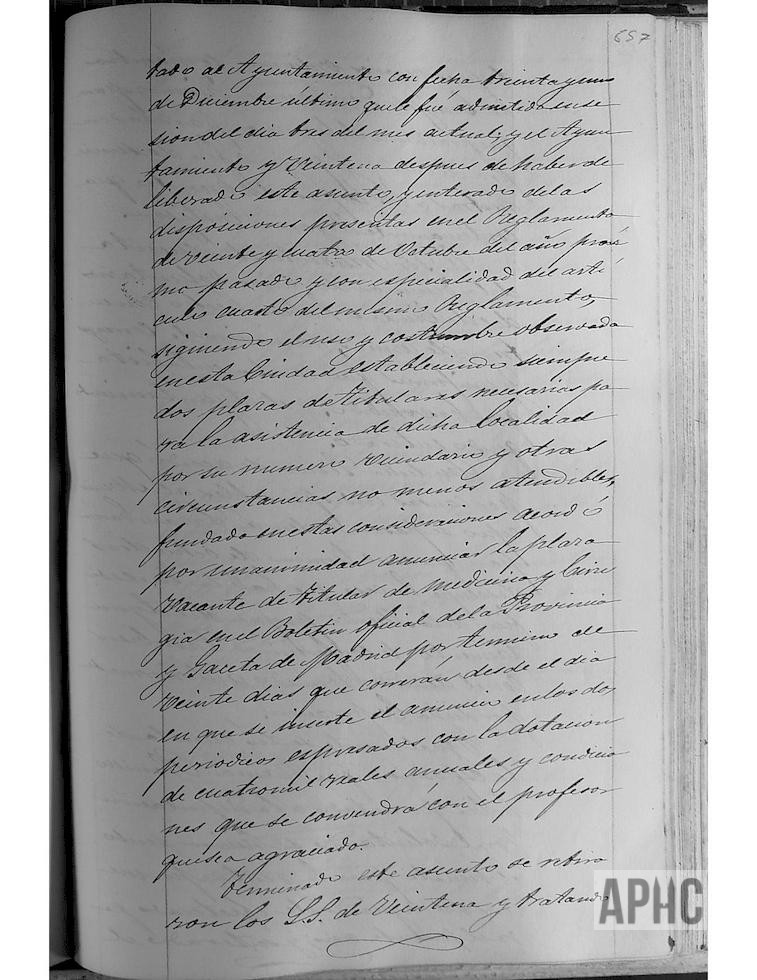 657
tado al Ayuntamiento con fecha treinta y uno
de Diciembre último que le fué admitida en se
sion del dia tres del mes actual; y el Ayun
tamiento y Veintena despues de haber de
liberado este asunto, y enterado de las
disposiciones prescritas en el Reglamento
de veinte y cuatro de Octubre del año proxi
mo pasado y con especialidad del arti
culo cuarto del mismo Reglamento,
siguiendo el uso y costumbre observada
en esta Ciudad estableciendo siempre
dos plazas de titulares necesarias pa
ra la asistencia de dicha localidad
por su numero vecindario y otras
circunstancias no menos atendibles,
fundado en estas consideraciones acordó
por unanimidad anunciar la plaza
vacante de titular de medicina y Ciru
gia en el Boletin oficial de la Provincia
y Gaceta de Madrid por termino de
veinte dias que correrán desde el dia
en que se inserte el anuncio en los dos
periodicos espresados con la dotacion
de cuatro mil reales anuales y condicio
nes que se convendrá con el profesor
que sea agraciado.
Terminado este asunto se retira
ron los S.S. de Veintena y tratando
APHC